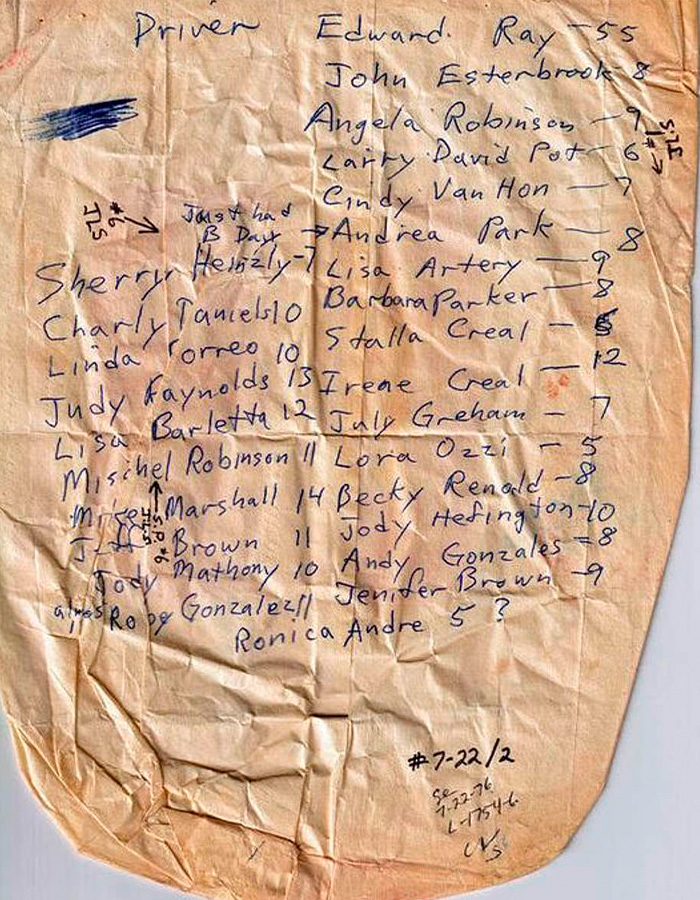 Driver Edward. Ray - 55
John Esterbrook 8
Angela Robinson - 9
Larry David Pot - 6
Cindy Van Hon - 7
Just had
B Day → Andrea Park - 8
Lisa Artery - 9
Barbara Parker - 8
Stalla Creal -
Irene Creal - 12
July Greham - 7
Lora Ozzi - 5
Becky Renold - 8
Jody Hefington - 10
Andy Gonzales = 8
Jenifer Brown - 9
Sherry Heinzly - 7
Charly Taniels 10
Linda Torreo 10
Judy Raynolds 13
Lisa Barletta 12
Mischel Robinson 11
Marshall 14
Brown 11
Jody Mathony 10
Gonzalez 11
Ronica Andre 5 ?
#6
JLS
#1
JLS
#6
JLS
#7-22/2
7-22-76
L-1754-6